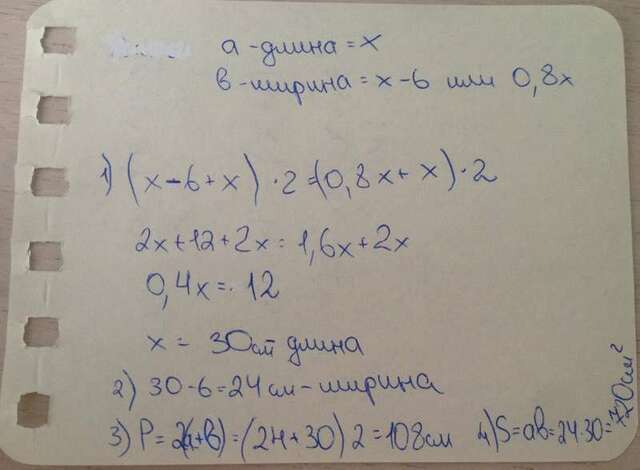 a - длина = x
в - ширина = x - 6 или 0,8x
1) (x - 6 + x) · 2 = (0,8x + x) · 2
2x + 12 + 2x = 1,6x + 2x
0,4x = 12
x = 30 см длина
2) 30 - 6 = 24 см - ширина
3) P = 2(a+в) = (24 + 30) 2 = 108 см 4) S = aв = 24 · 30 = 720 см²